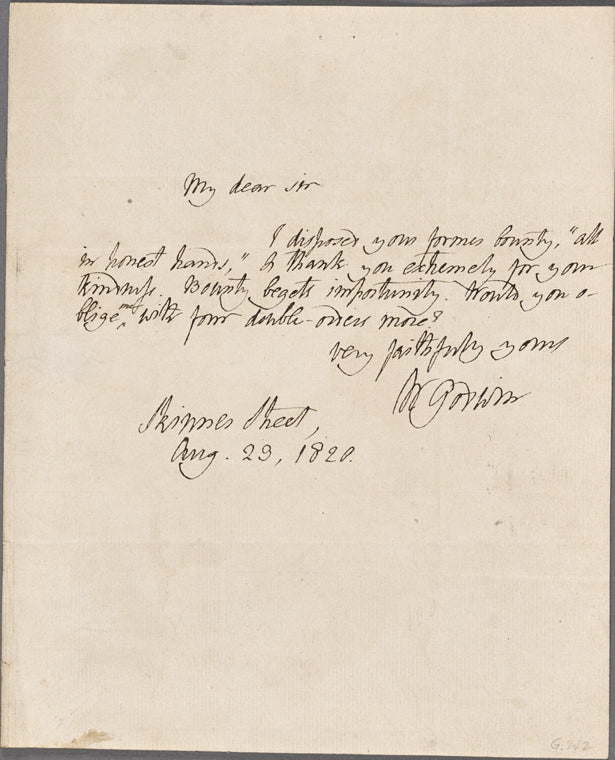 My dear sir
I disposed your former bounty, "all
in honest hands," & thank you extremely for your
kindness. Bounty begets importunity. Would you o-
blige me, with four double-orders more?
very faithfully yours
W Godwin
Skinner Street,
Aug. 23, 1820.
G. 242